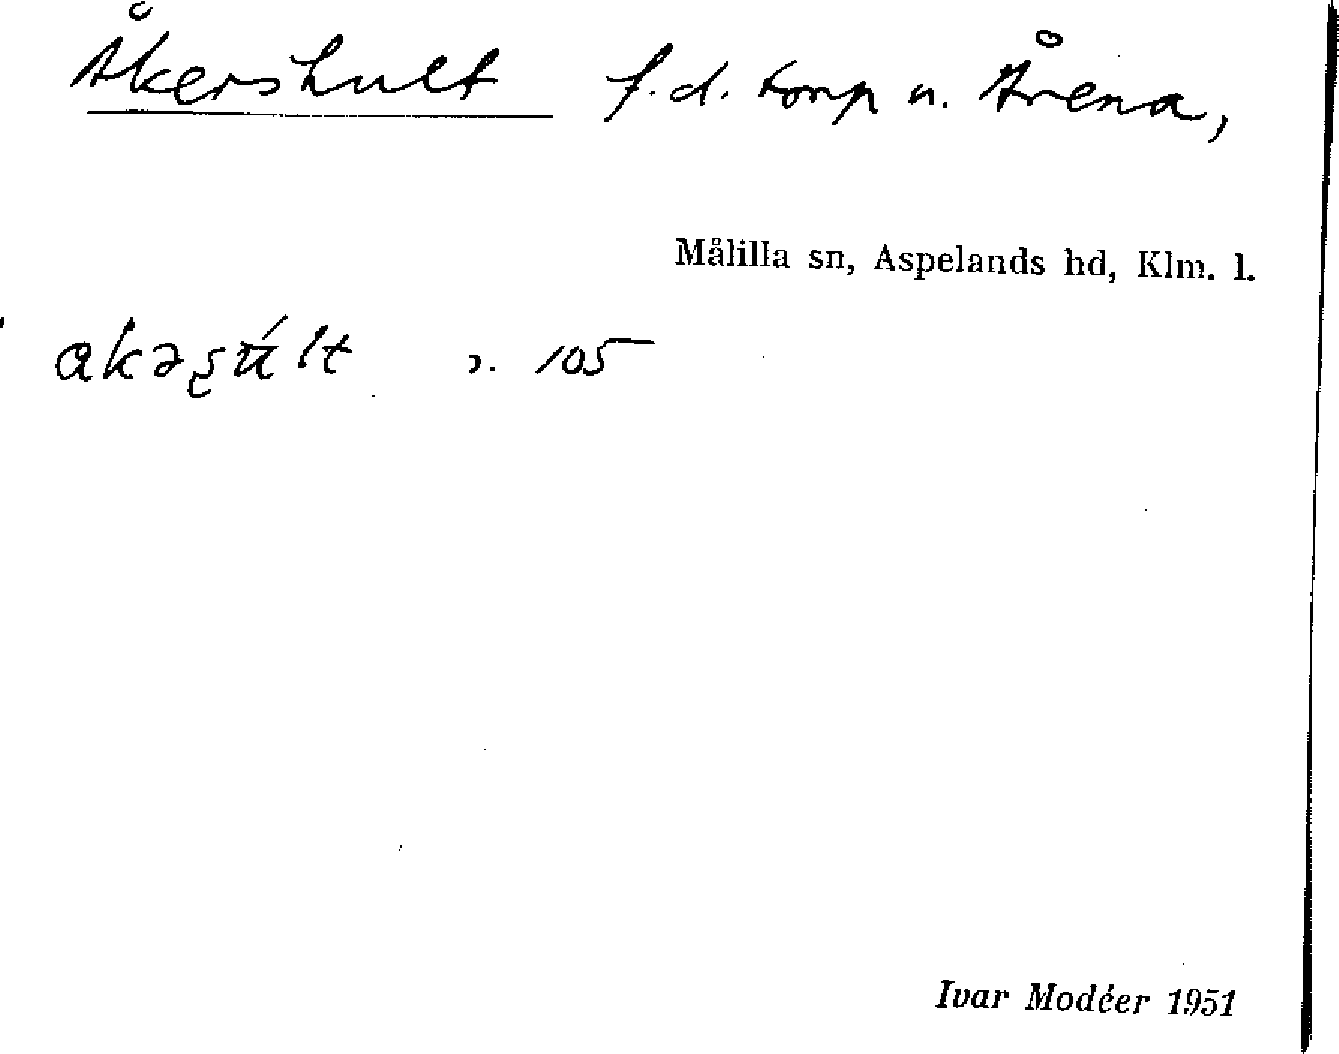 Åkershult f.d. torp u. Årena,
Målilla sn, Aspelands hd, Klm. l.
105
Ivar Modéer 1951